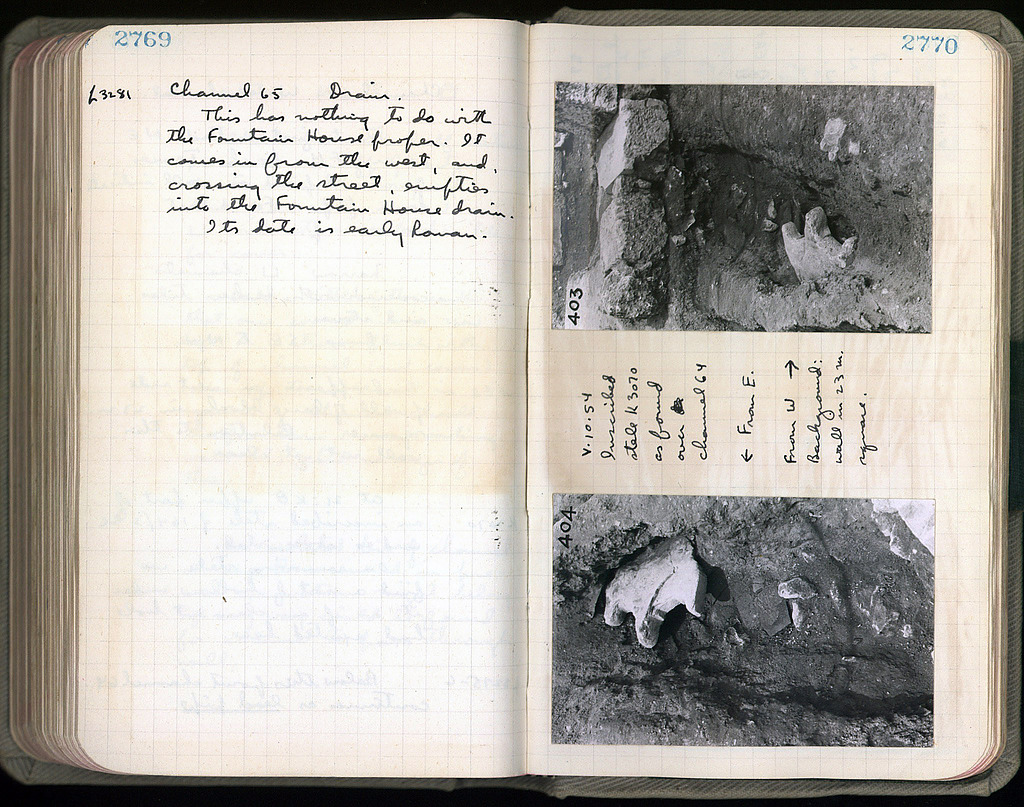 2769
L3281 Channel 65 Drain.
This has nothing to do with
the Fountain House proper. It
comes in from the west, and,
crossing the street, empties
into the Fountain House drain.
Its date is early Roman.
2770
403
V.10.54
Inscribed
stele K 3070
as found
over
channel 64
← From E.
From W →
Background:
wall in 23 m.
square.
404